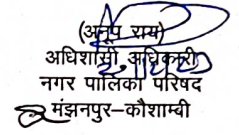 (अनूप राय)
अधिशासी अधिकारी
नगर पालिका परिषद
मंझनपुर-कौशाम्बी